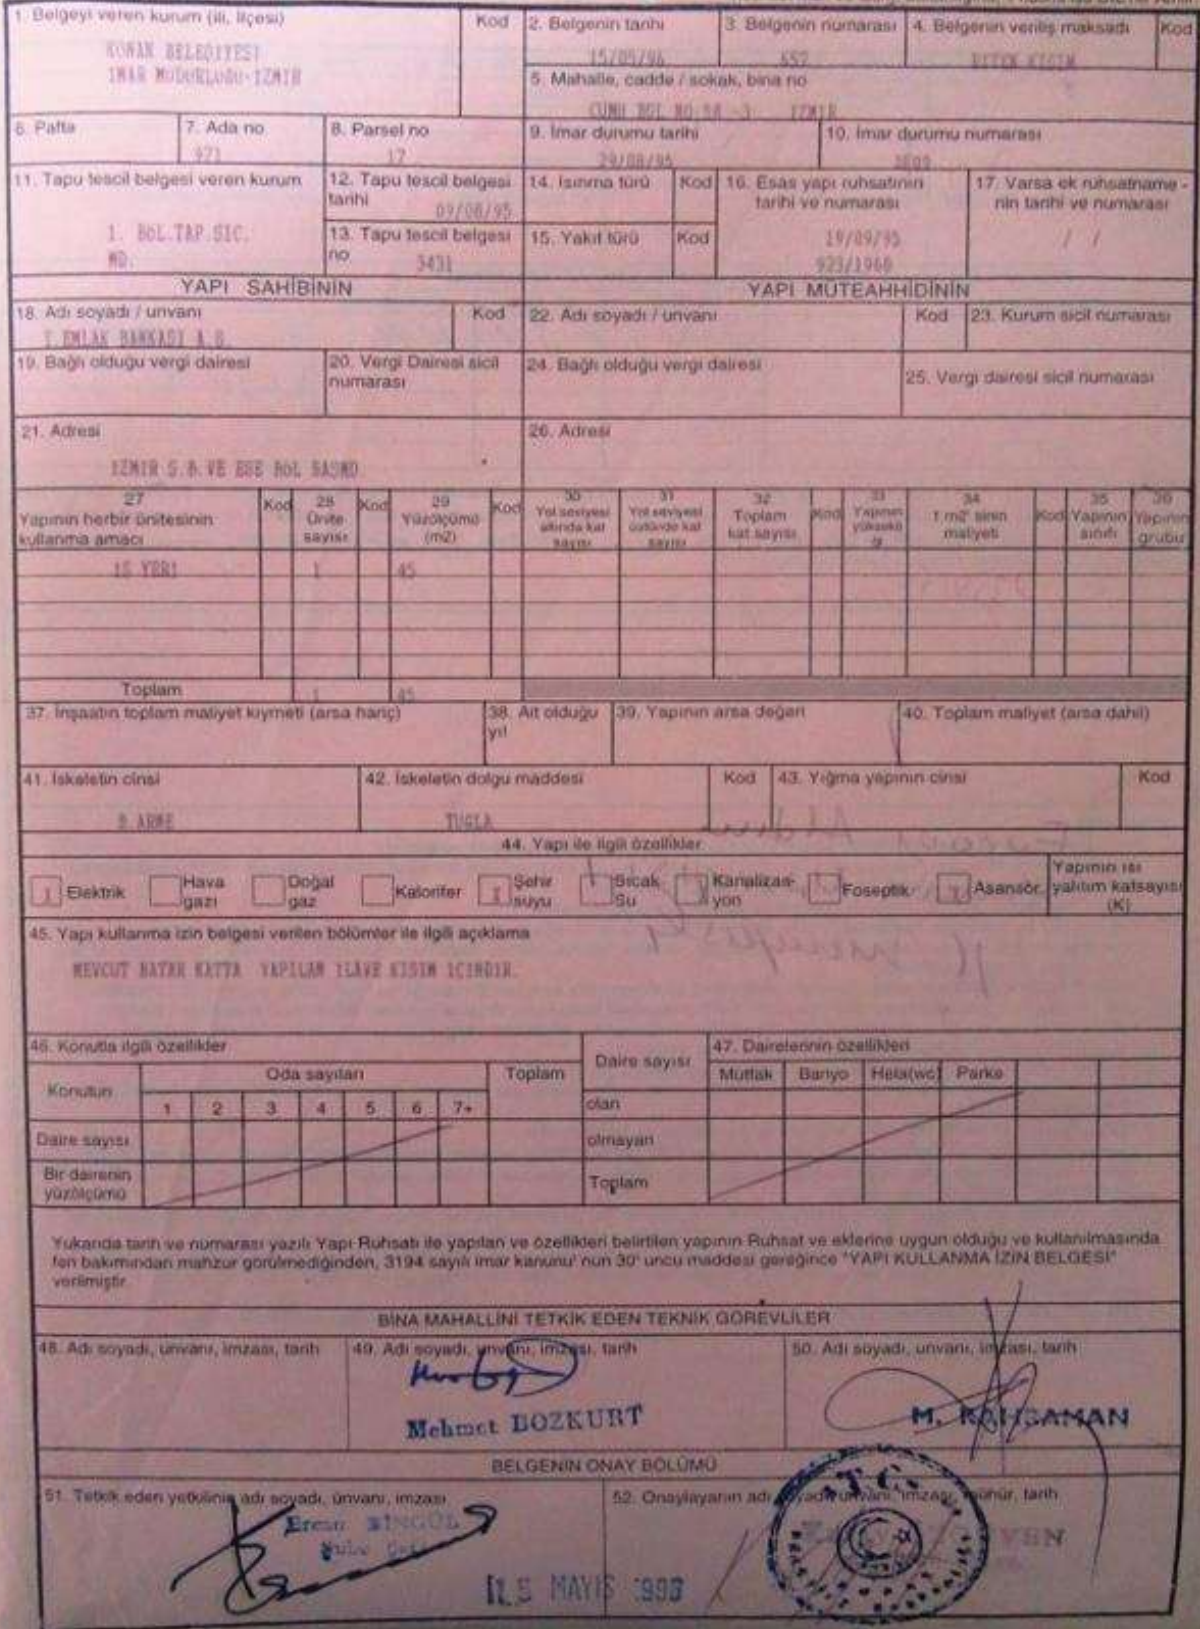 1. Belgeyi veren kurum (ili, ilçesi)
Kod
KONAK BELEDIYESI
IMAR MUDURLUGU-IZMIR
2. Belgenin tarihi
15/05/96
3. Belgenin numarası
657
4. Belgenin veriliş maksadı
Kod
BITEN KISIM
5. Mahalle, cadde / sokak, bina no
CUMH BUL NO.58 -3 IZMIR
6. Pafta
7. Ada no
971
8. Parsel no
17
9. İmar durumu tarihi
29/08/95
10. İmar durumu numarası
11. Tapu tescil belgesi veren kurum
1. BOL.TAP.SIC.
MD.
12. Tapu tescil belgesi
tarihi
09/08/95
13. Tapu tescil belgesi
no
5431
14. Isınma türü
Kod
15. Yakıt türü
Kod
16. Esas yapı ruhsatının
tarihi ve numarası
19/09/95
923/1960
17. Varsa ek ruhsatname -
nin tarihi ve numarası
/ /
YAPI SAHİBİNİN
YAPI MÜTEAHHİDİNİN
18. Adı soyadı / unvanı
Kod
T.EMLAK BANKASI A.S.
22. Adı soyadı / unvanı
Kod
23. Kurum sicil numarası
19. Bağlı olduğu vergi dairesi
20. Vergi Dairesi sicil
numarası
24. Bağlı olduğu vergi dairesi
25. Vergi dairesi sicil numarası
21. Adresi
IZMIR S.B.VE EGE BOL BASMD
26. Adresi
27
Yapının herbir ünitesinin
kullanma amacı
Kod
28
Ünite
sayısı
Kod
29
Yüzölçümü
(m2)
Kod
30
Yol seviyesi
altında kat
sayısı
31
Yol seviyesi
üstünde kat
sayısı
32
Toplam
kat sayısı
Kod
33
Yapının
yüksekli
ği
34
1 m2' sinin
maliyeti
Kod
35
Yapının
sınıfı
36
Yapının
grubu
IS YERI 1 45
Toplam 1 45
37. İnşaatın toplam maliyet kıymeti (arsa hariç)
38. Ait olduğu
yıl
39. Yapının arsa değeri
40. Toplam maliyet (arsa dahil)
41. İskeletin cinsi
B.ARME
42. İskeletin dolgu maddesi
Kod
TUGLA
43. Yığma yapının cinsi
Kod
44. Yapı ile ilgili özellikler
Elektrik
Hava
gazı
Doğal
gaz
Kalorifer
Şehir
suyu
Sıcak
Su
Kanalizas-
yon
Foseptik
Asansör
Yapının ısı
yalıtım katsayısı
(K)
45. Yapı kullanma izin belgesi verilen bölümler ile ilgili açıklama
MEVCUT BATAR KATTA YAPILAN ILAVE KISIM ICINDIR.
46. Konutla ilgili özellikler
Konutun
Oda sayıları
Toplam
1 2 3 4 5 6 7+
Daire sayısı
Bir dairenin
yüzölçümü
Daire sayısı
47. Dairelerinin özellikleri
Mutfak Banyo Hela(wc) Parke
olan
olmayan
Toplam
Yukarıda tarih ve numarası yazılı Yapı Ruhsatı ile yapılan ve özellikleri belirtilen yapının Ruhsat ve eklerine uygun olduğu ve kullanılmasında
fen bakımından mahzur görülmediğinden, 3194 sayılı imar kanunu' nun 30' uncu maddesi gereğince "YAPI KULLANMA İZİN BELGESİ"
verilmiştir.
BİNA MAHALLİNİ TETKİK EDEN TEKNİK GÖREVLİLER
48. Adı soyadı, ünvanı, imzası, tarih
49. Adı soyadı, ünvanı, imzası, tarih
Mehmet BOZKURT
50. Adı soyadı, unvanı, imzası, tarih
M. KAHRAMAN
BELGENİN ONAY BÖLÜMÜ
51. Tetkik eden yetkilinin adı soyadı, ünvanı, imzası
BİNGÖL
52. Onaylayanın adı soyadı, unvanı, imzası, mühür, tarih
T.C.
15 MAYIS 1996